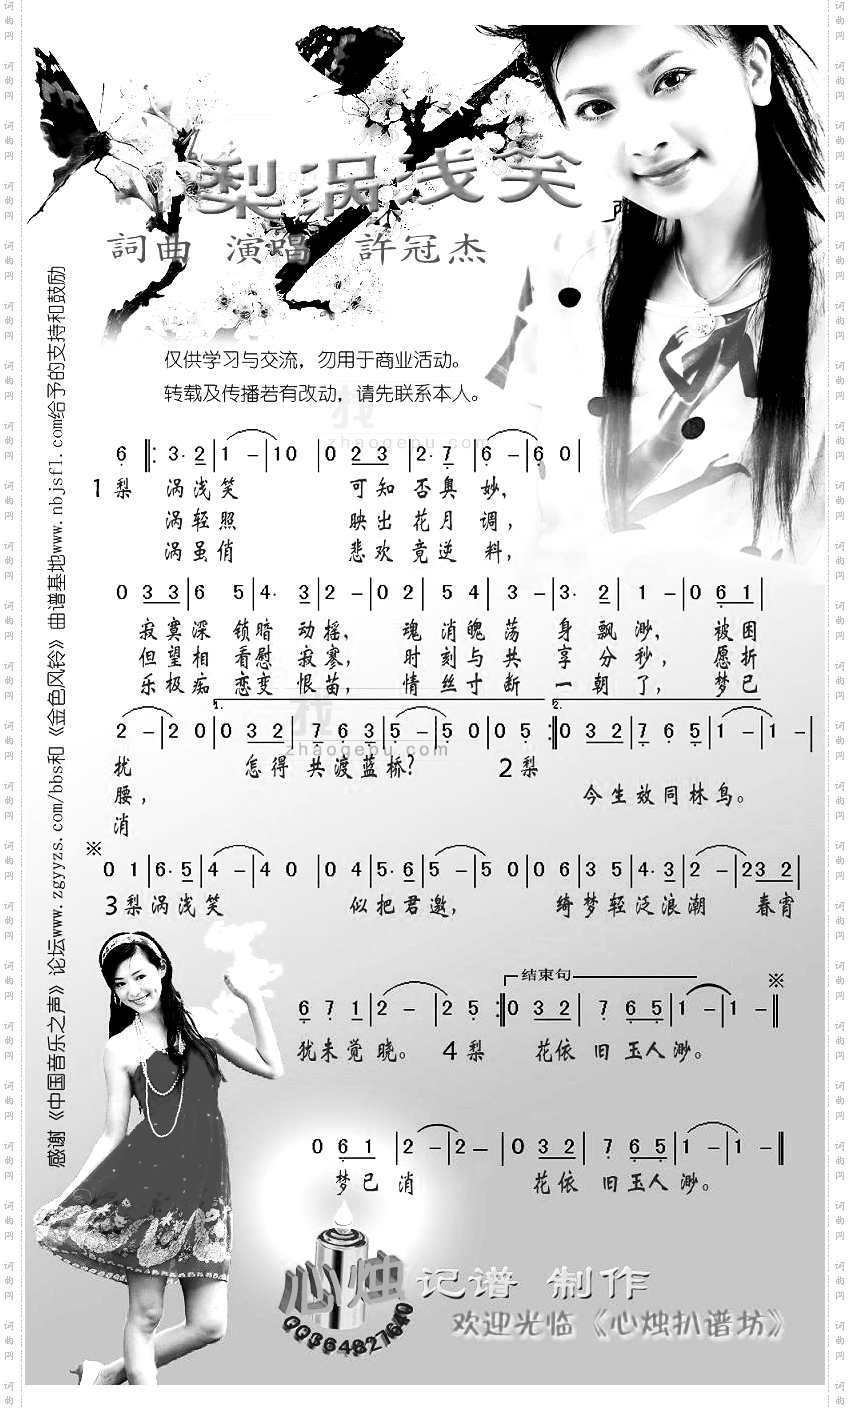 梨涡浅笑
詞曲 演唱 許冠杰
仅供学习与交流，勿用于商业活动。
转载及传播若有改动，请先联系本人。
找
zhaogepu.com
6 ‖: 3· 2 | 1 - | 1 0 | 0 2 3 | 2· 7 | 6 - | 6 0 |
1梨 涡浅笑 可知否奥妙，
涡轻照 映出花月调，
涡虽俏 悲欢竟逆料，
0 3 3 | 6 5 | 4· 3 | 2 - | 0 2 | 5 4 | 3 - | 3· 2 | 1 - | 0 6 1 |
寂寞深锁暗动摇， 魂消魄荡身飘渺， 被困
但望相看慰寂寥， 时刻与共享分秒， 愿折
乐极痴恋变恨苗， 情丝寸断一朝了， 梦已
1. 2.
2 - | 2 0 | 0 3 2 | 7 6 3 | 5 - | 5 0 | 0 5 :‖ 0 3 2 | 7 6 5 | 1 - | 1 - |
找
zhaogepu.com
扰 怎得共渡蓝桥? 2梨
腰， 今生效同林鸟。
消
※
0 1 | 6· 5 | 4 - | 4 0 | 0 4 | 5· 6 | 5 - | 5 0 | 0 6 | 3 5 | 4· 3 | 2 - | 2 3 2 |
3梨涡浅笑 似把君邀， 绮梦轻泛浪潮 春宵
结束句
※
6 7 1 | 2 - | 2 5 :‖ 0 3 2 | 7 6 5 | 1 - | 1 - ‖
犹未觉晓。 4梨 花依旧玉人渺。
0 6 1 | 2 - | 2 - | 0 3 2 | 7 6 5 | 1 - | 1 - ‖
梦已消 花依旧玉人渺。
心烛 记谱 制作
QQ364827640
欢迎光临《心烛扒谱坊》
感谢《中国音乐之声》论坛www.zgyyzs.com/bbs和《金色风铃》曲谱基地www.nbjsfl.com给予的支持和鼓励
词曲网